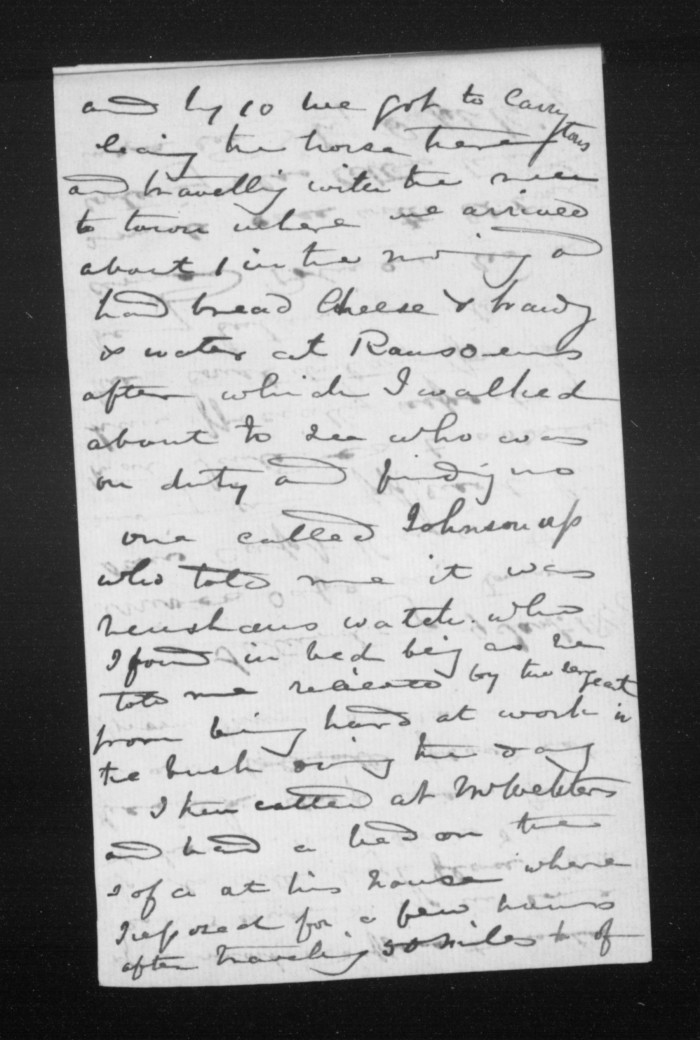 and by 10 we got to Carry
tons
leaving the horse there
and travelling with the men
to town where we arrived
about 1 in the morning a
had bread Cheese & brandy
& water at Ransomens
after which I walked
about to see who was
on duty and finding no
one called Johnson up
who told me it was
Henshaws watch. who
I found in bed being as he
told me relieved by the sergeant
from being hard at work in
the bush during the day
I then called at McWebbers
and had a bed on the
sofa at his house where
I reposed for a few hours
after traveling 50 miles & of